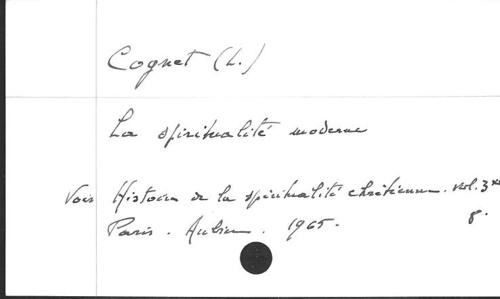 Cognet (L.)
La spiritualité moderne
Voir Histoire de la spiritualité chrétienne. vol. 3
Paris. Aubier. 1965. 8.